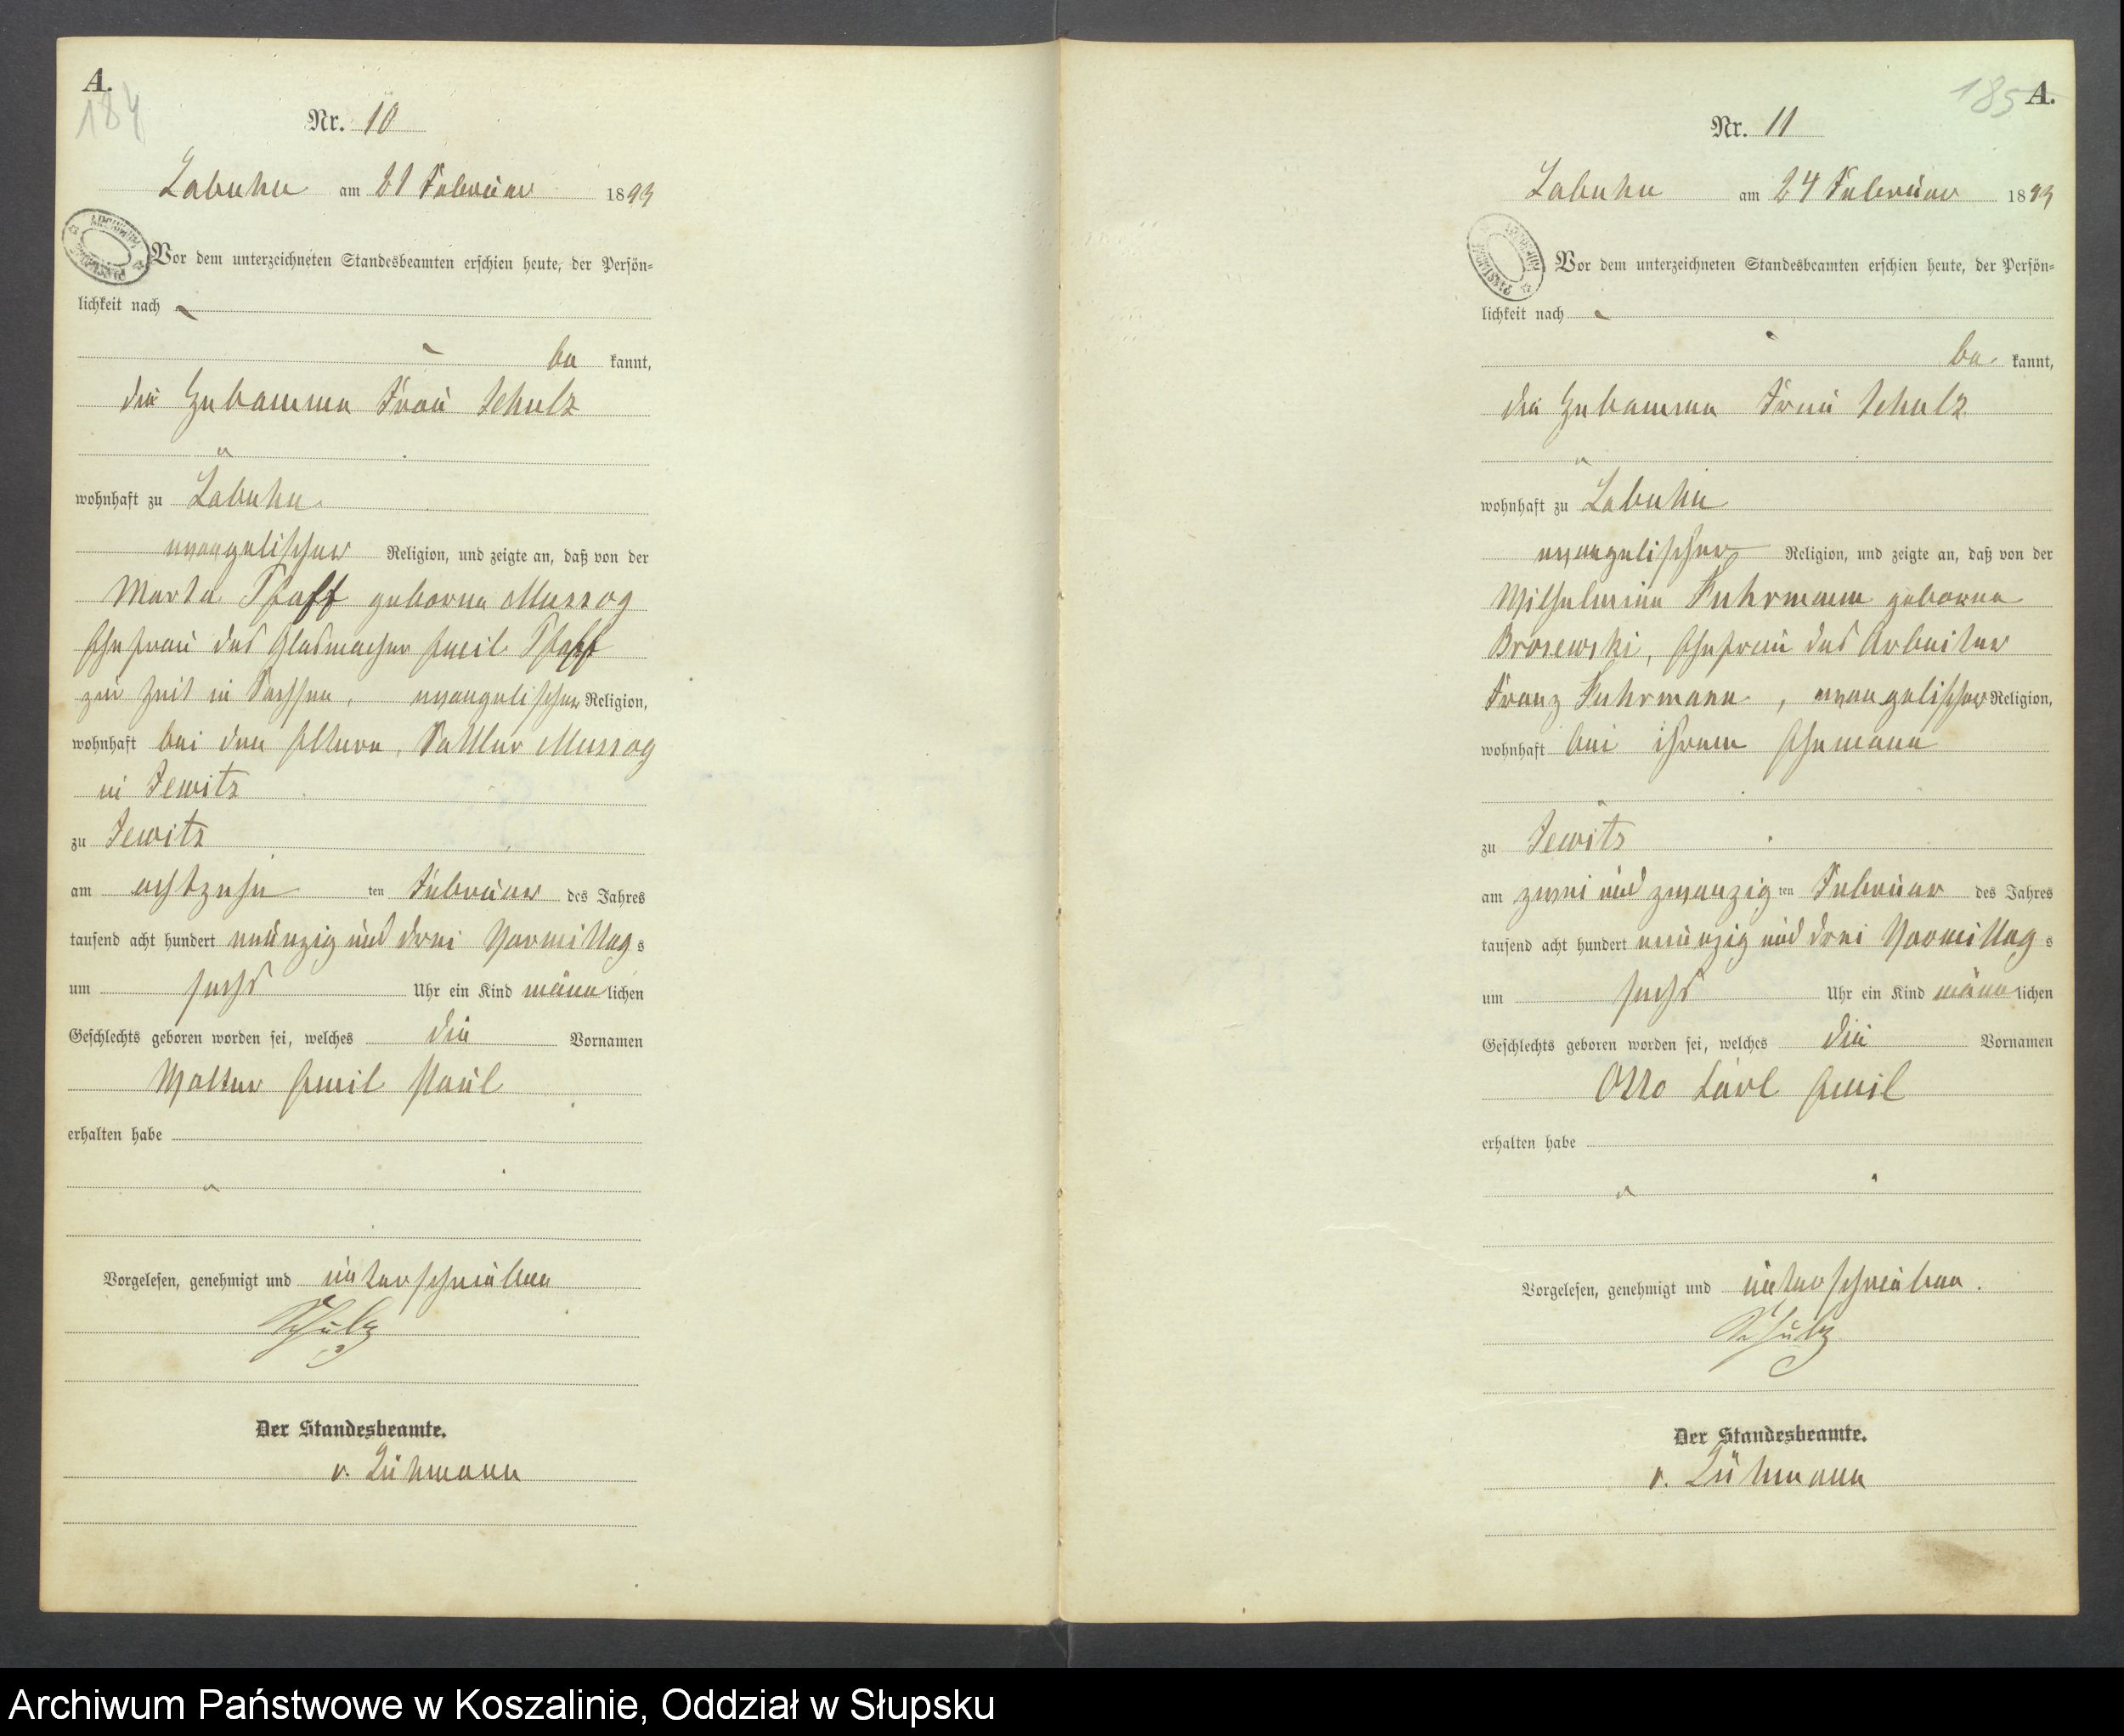 A.
184
Nr. 10
Labuhn am 21 Februar 1893
Vor dem unterzeichneten Standesbeamten erschien heute, der Persön=
lichkeit nach
be kannt,
die Hebamme Frau Schulz
wohnhaft zu Labuhn
evangelischer Religion, und zeigte an, daß von der
Marta Pfaff geborne Mussog
Ehefrau des Glasmacher Emil Pfaff
zur Zeit in Sachsen, evangelischer Religion,
wohnhaft bei den Eltern, Mussog
in Jewitz
zu Jewitz
am achtzehn ten Februar des Jahres
tausend acht hundert neunzig und drei Vormittag s
um sechs Uhr ein Kind männ lichen
Geschlechts geboren worden sei, welches die Vornamen
Walter Emil Paul
erhalten habe
Vorgelesen, genehmigt und unterschrieben
Schulz
Der Standesbeamte.
v. Lühmann
185
A.
Nr. 11
Labuhn am 24 Februar 1893
Vor dem unterzeichneten Standesbeamten erschien heute, der Persön=
lichkeit nach
be kannt,
die Hebamme Frau Schulz
wohnhaft zu Labuhn
evangelischer Religion, und zeigte an, daß von der
Wilhelmine Fuhrmann geborne
Brosewski, Ehefrau des Arbeiter
Franz Fuhrmann, evangelischer Religion,
wohnhaft bei ihrem Ehemann
zu Jewitz
am zwei und zwanzig ten Februar des Jahres
tausend acht hundert neunzig und drei Vormittag s
um sechs Uhr ein Kind männ lichen
Geschlechts geboren worden sei, welches die Vornamen
Otto Carl Emil
erhalten habe
Vorgelesen, genehmigt und unterschrieben.
Schulz
Der Standesbeamte.
v. Lühmann
Archiwum Państwowe w Koszalinie, Oddział w Słupsku